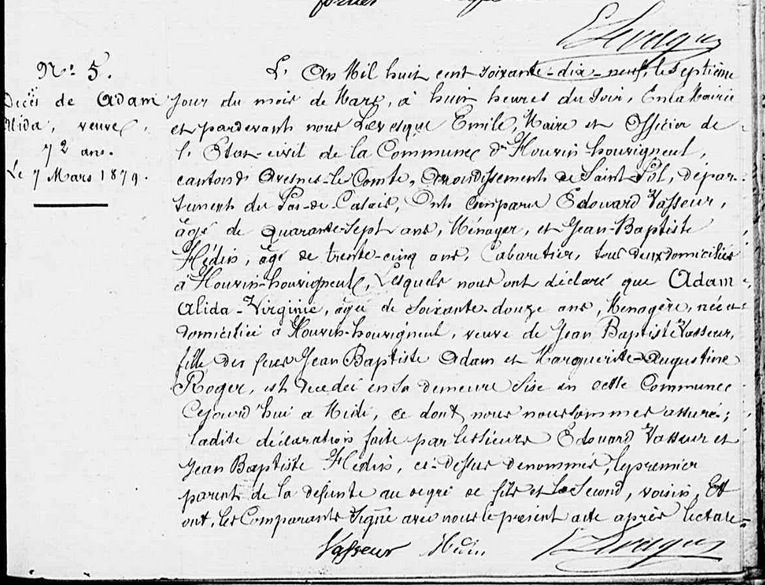 E. Levesque
N° 5.
Décès de Adam
Alida, veuve,
72 ans.
Le 7 Mars 1879.
L' An Mil huit cent soixante-dix-neuf, le Septième
jour du mois de Mars, à huit heures du Soir, En la Mairie
et pardevant nous Levesque Emile, Maire et Officier de
l' Etat-civil de la Commune d' Houvin houvigneul,
canton d' Avesnes-le Comte, Arrondissement de Saint-Pol, Dépar-
tement du Pas-de-Calais, Ont Comparu Edouard Vasseur,
âgé de Quarante-Sept ans, Ménager, et Jean-Baptiste
Hédin, âgé de trente-cinq ans, Cabaretier, tous deux domiciliés
à Houvin-houvigneul, Lesquels nous ont déclaré que Adam
Alida-Virginie, âgée de Soixante-douze ans, Ménagère, née &
domiciliée à Houvin-houvigneul, veuve de Jean Baptiste Vasseur,
fille des feus Jean Baptiste Adam et Marguerite Augustine
Roger, est décédée en sa demeure Sise en cette Commune
Cejourd'hui à Midi, ce dont nous nous sommes assuré;
ladite déclaration faite par les sieurs Edouard Vasseur et
Jean Baptiste Hédin, ci-dessus dénommés, le premier
parent de la défunte au degré de fils et le Second, voisin, Et
ont, les Comparants Signé avec nous le présent acte après lecture
Vasseur Hédin E. Levesque